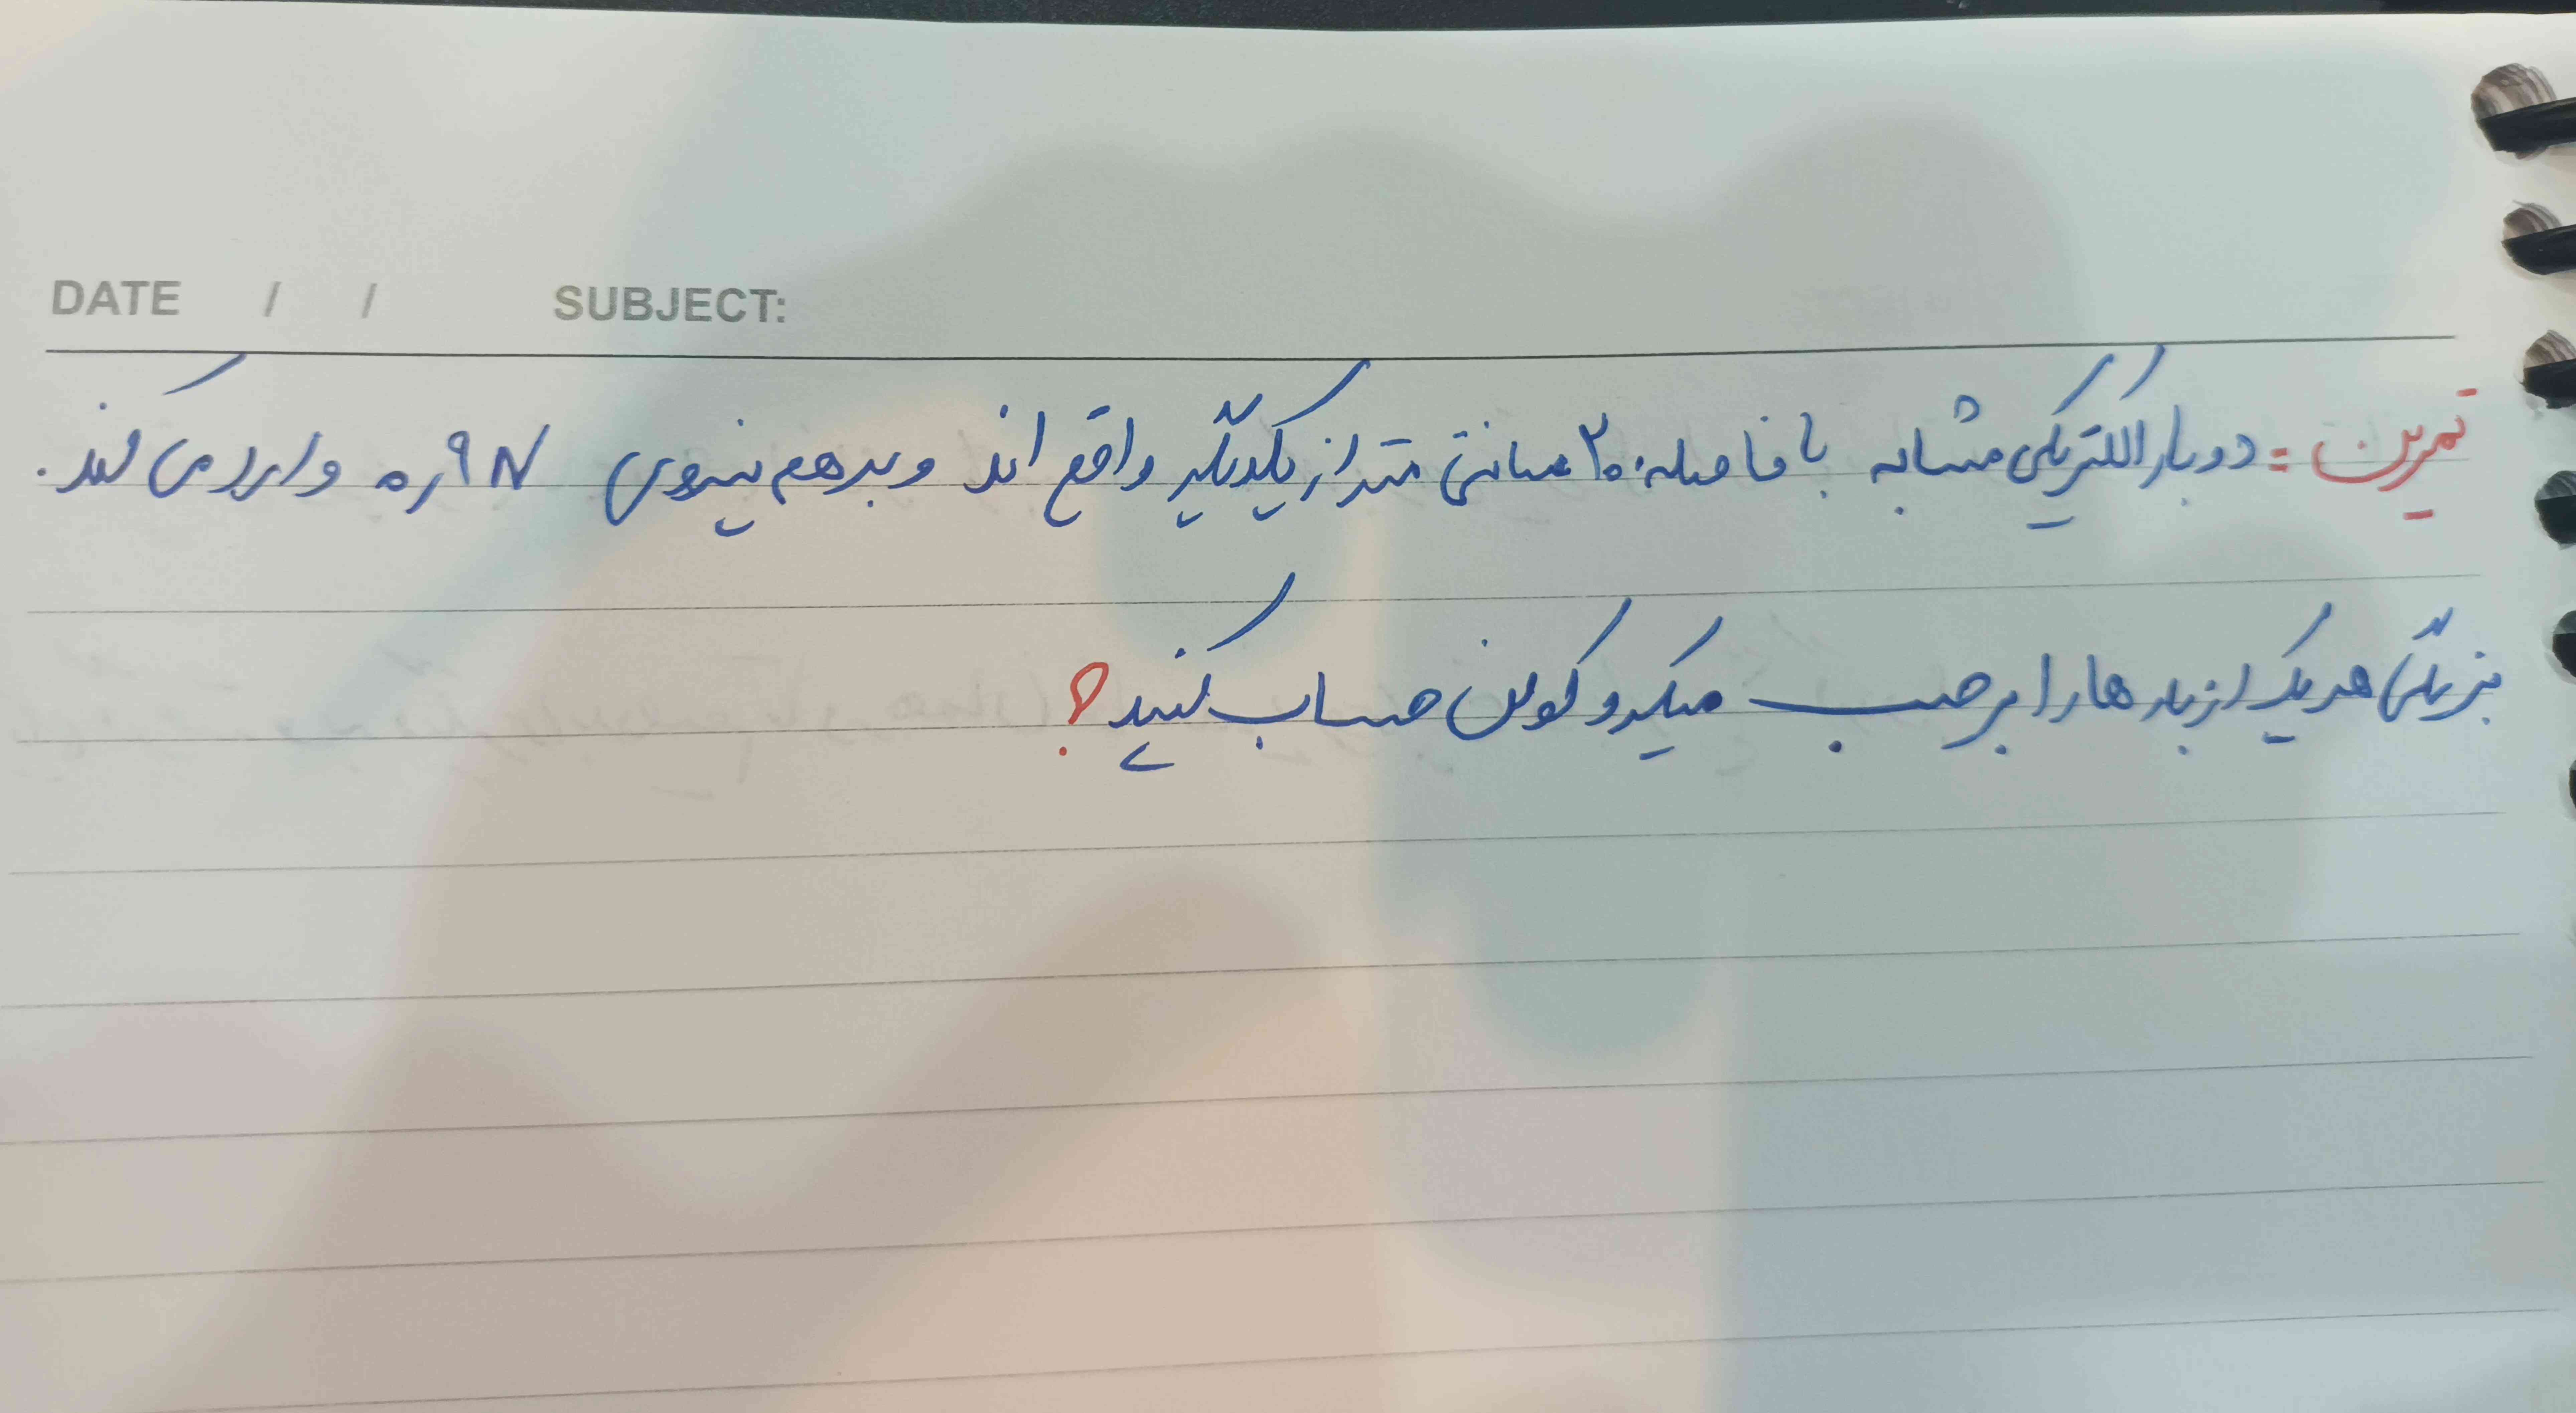 DATE / / SUBJECT:
تمرین = دو بار الکتریکی مشابه با فاصله ۲۰ سانتی متر از یکدیگر واقع اند و بر هم نیروی ۰٫۹ N وارد می کنند.
بزرگی هر یک از بارها را برحسب میکروکولن حساب کنید؟